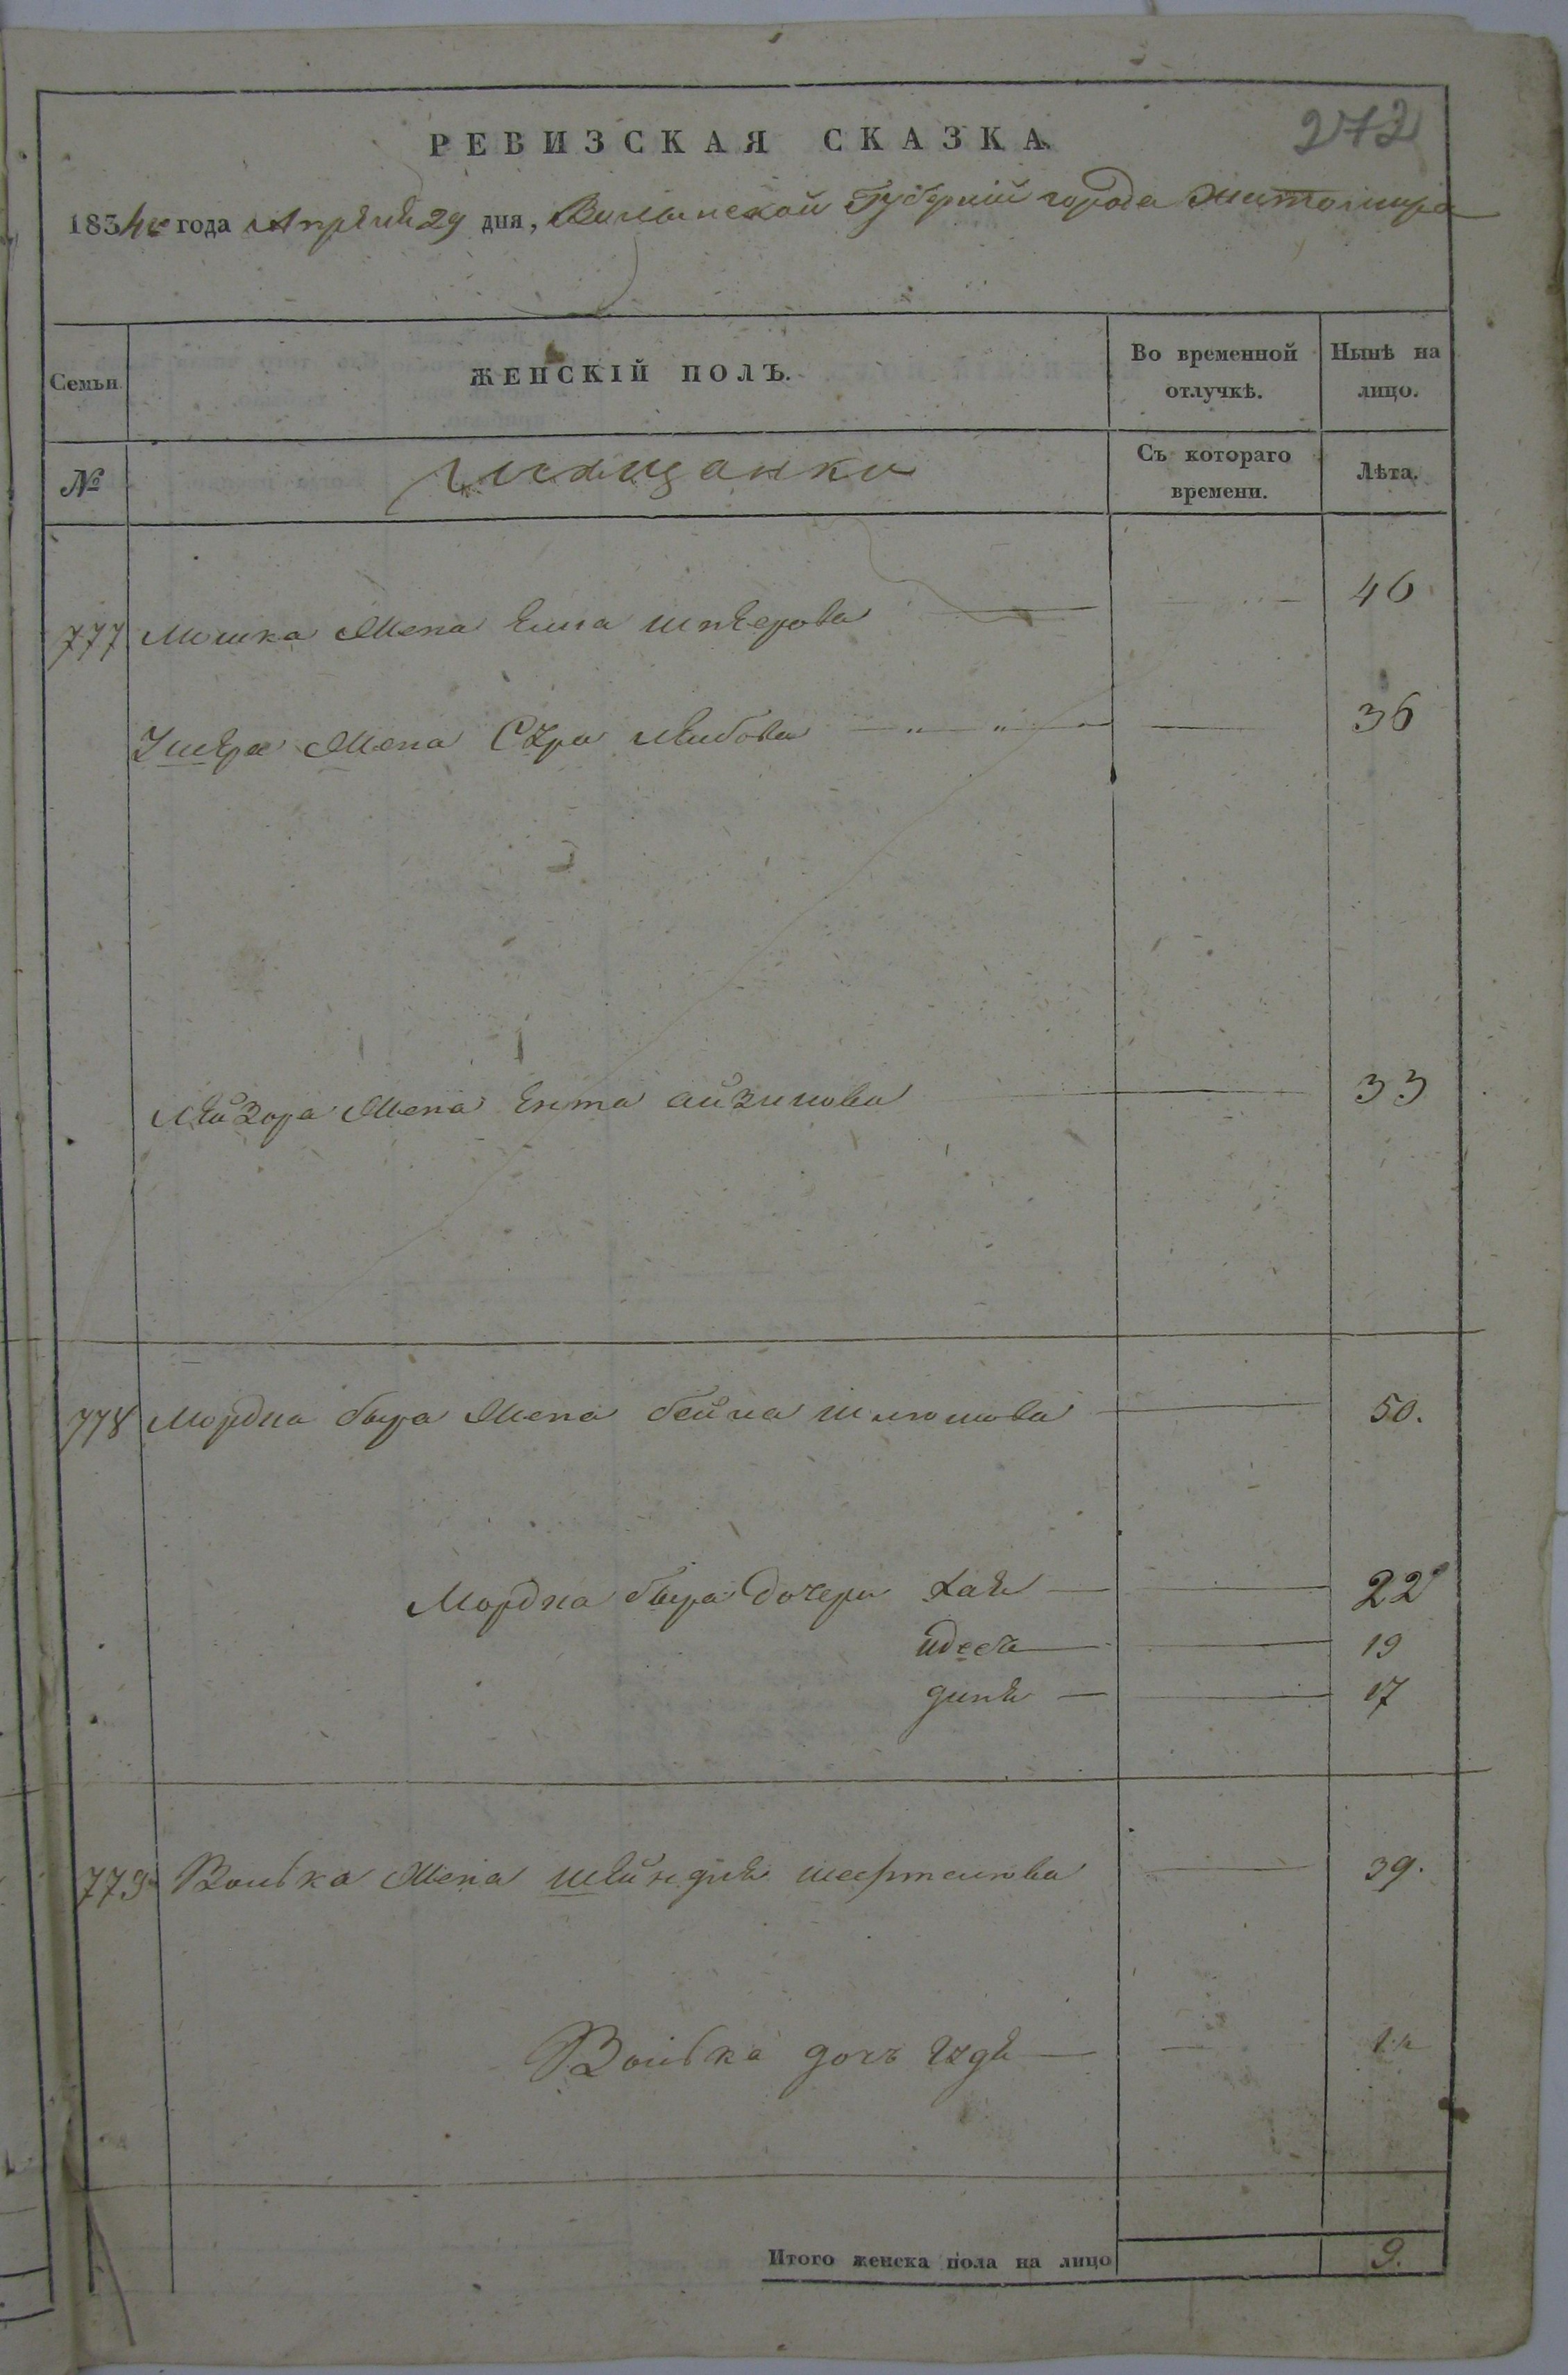 272
РЕВИЗСКАЯ СКАЗКА.
1834го года Апрѣля 29 дня, Волынской Губерніи города Житомира
Семьи. ЖЕНСКІЙ ПОЛЪ. Во временной отлучкѣ. Нынѣ на лицо.
№ мѣщанки Съ котораго времени. Лѣта.
777 Мошка Жена 46
Жена Лейбова 36
Лейзора Жена Ента айзикова 33
778 Мордка бера Жена бейла шлюмова 50.
Мордка бера дочери хая 22
идеса 19
779 Волька Жена 39.
Волька дочь
Итого женска пола на лицо 9.